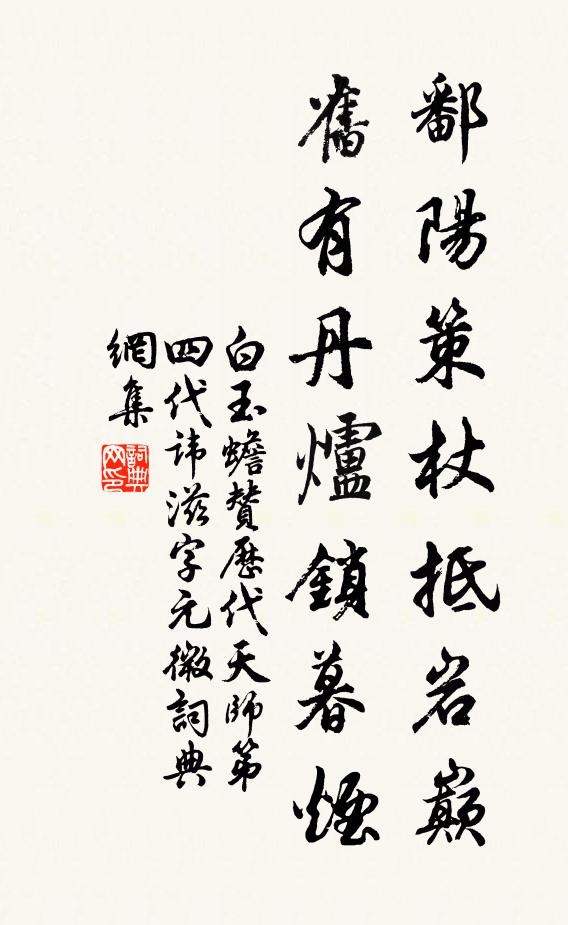 鄱陽策杖抵岩巔
舊有丹爐鎖暮煙
白玉蟾贊歷代天師第
四代諱滋字元微詞典
網集
詞典
网印